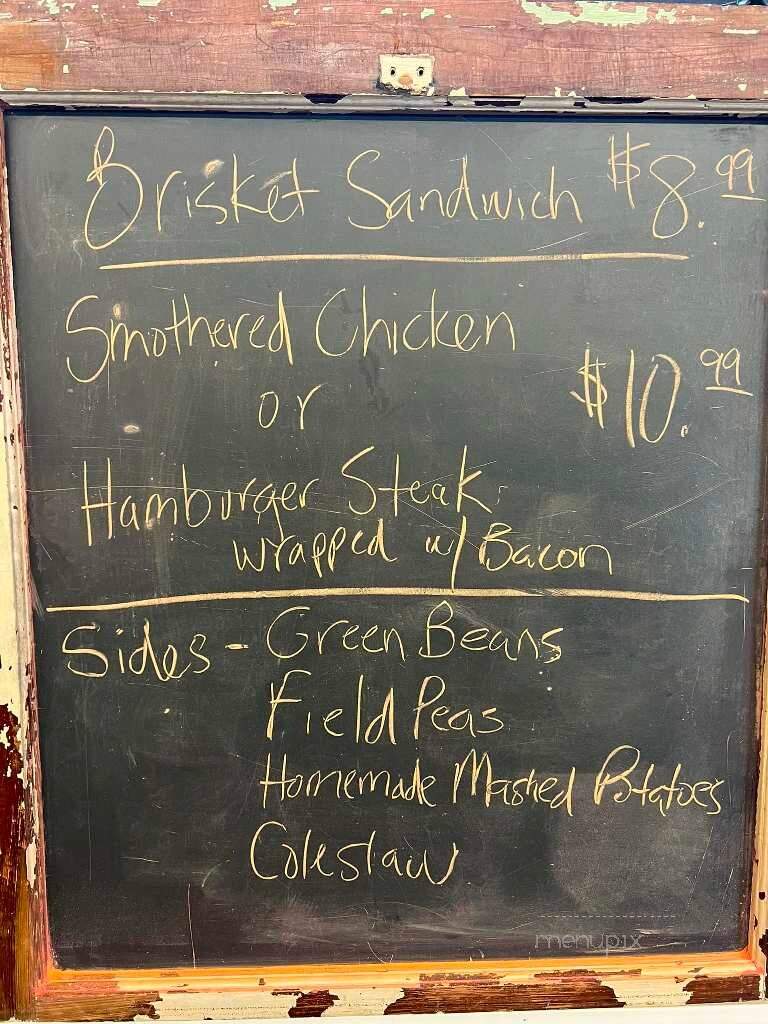 Brisket Sandwich $8.99
Smothered Chicken
or
$10.99
Hamburger Steak
wrapped w/ Bacon
Sides - Green Beans
Field Peas
Homemade Mashed Potatoes
Coleslaw
menupix